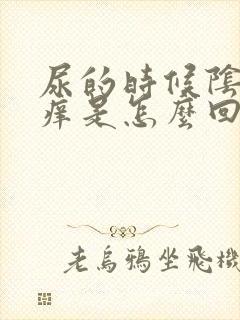 尿的時候陰
痒是怎麼回
老烏鴉坐飛機